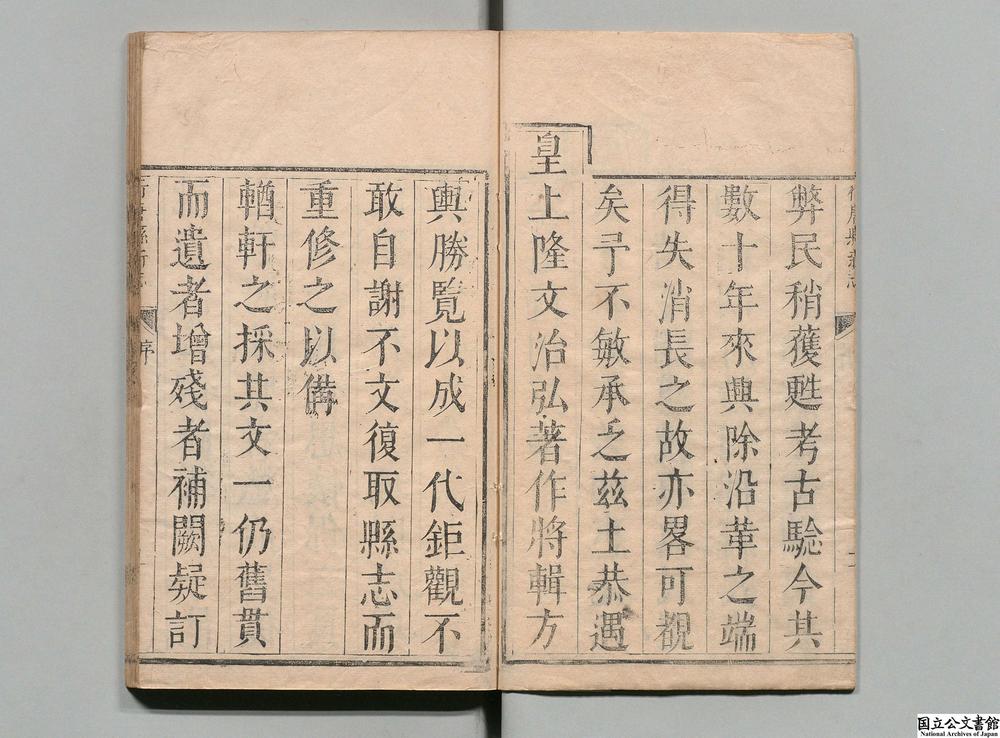 弊民稍獲甦考古驗今其
數十年來興除沿革之端
得失消長之故亦畧可覩
矣予不敏承乏茲土恭遇
皇上隆文治弘著作將輯方
輿勝覧以成一代鉅觀不
敢自謝不文復取縣志而
重修之以備
輶軒之採其文一仍舊貫
而遺者增殘者補闕疑訂
行唐縣新志
序
国立公文書館
National Archives of Japan